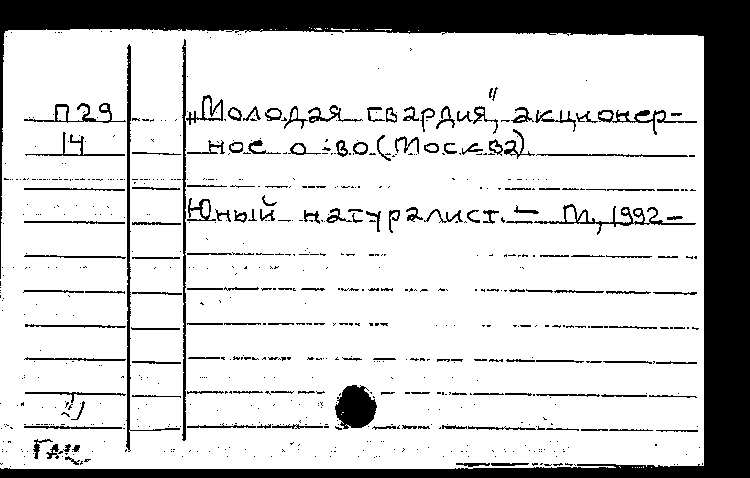 П29 „Молодая гвардия", акционер-
14 ное о-во (Москва).
Юный натуралист. – М., 1992–